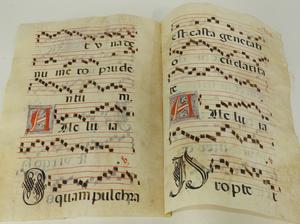 t v na de
nu me ro prude
ntu m
A lle lu ia
O quam pulchra
est casta generati
o cu claritate
A lle lu ia
Propte r